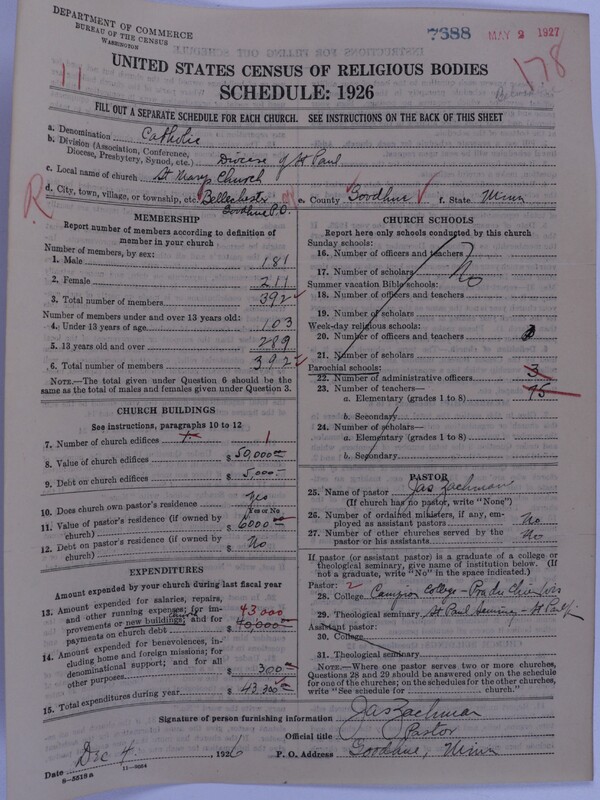 DEPARTMENT OF COMMERCE
BUREAU OF THE CENSUS
WASHINGTON
7688 MAY 2 1927
11
178
UNITED STATES CENSUS OF RELIGIOUS BODIES
SCHEDULE: 1926
FILL OUT A SEPARATE SCHEDULE FOR EACH CHURCH. SEE INSTRUCTIONS ON THE BACK OF THIS SHEET
a. Denomination Catholic
b. Division (Association, Conference,
Diocese, Presbytery, Synod, etc.) Diocese of St Paul
c. Local name of church St Marys Church
d. City, town, village, or township, etc. Bellechester e. County Goodhue f. State Minn
Goodhue P.O.
R
MEMBERSHIP
Report number of members according to definition of
member in your church
Number of members, by sex:
1. Male 181
2. Female 211
3. Total number of members 392
Number of members under and over 13 years old:
4. Under 13 years of age 103
5. 13 years old and over 289
6. Total number of members 392
NOTE.—The total given under Question 6 should be
same as the total of males and females given under Question 3.
CHURCH BUILDINGS
See instructions, paragraphs 10 to 12
7. Number of church edifices 1
8. Value of church edifices $ 50,000
9. Debt on church edifices $ 5,000
10. Does church own pastor's residence? yes
(Yes or No)
11. Value of pastor's residence (if owned by
church) $ 6000
12. Debt on pastor's residence (if owned by
church) $ No
EXPENDITURES
Amount expended by your church during last fiscal year
13. Amount expended for salaries, repairs,
and other running expenses; for im-
provements or new buildings; and for
payments on church debt $ 40,000
43,000
14. Amount expended for benevolences, in-
cluding home and foreign missions; for
denominational support; and for all
other purposes $ 300
15. Total expenditures during year $ 43,300
CHURCH SCHOOLS
Report here only schools conducted by this church
Sunday schools:
16. Number of officers and teachers
17. Number of scholars No
Summer vacation Bible schools:
18. Number of officers and teachers
19. Number of scholars
Week-day religious schools:
20. Number of officers and teachers
21. Number of scholars
Parochial schools:
22. Number of administrative officers 3
23. Number of teachers—
a. Elementary (grades 1 to 8) 75
b. Secondary
24. Number of scholars—
a. Elementary (grades 1 to 8)
b. Secondary
PASTOR
25. Name of pastor Jas Zachman
(If church has no pastor, write "None")
26. Number of ordained ministers, if any, em-
ployed as assistant pastors No
27. Number of other churches served by the
pastor or his assistants No
If pastor (or assistant pastor) is a graduate of a college or
theological seminary, give name of institution below. (If
not a graduate, write "No" in the space indicated.)
Pastor: 2
28. College Campion College - Pradu Chien Wis
29. Theological seminary St Paul Seminary - St Paul
Assistant pastor:
30. College
31. Theological seminary
NOTE.—Where one pastor serves two or more churches,
Questions 28 and 29 should be answered only on the schedule
for one of the churches; on the schedules for the other churches,
write "See schedule for church."
Signature of person furnishing information Jas Zachman
Official title Pastor
Date Dec 4, 1926 P. O. Address Goodhue, Minn
8-5518a 11-9064